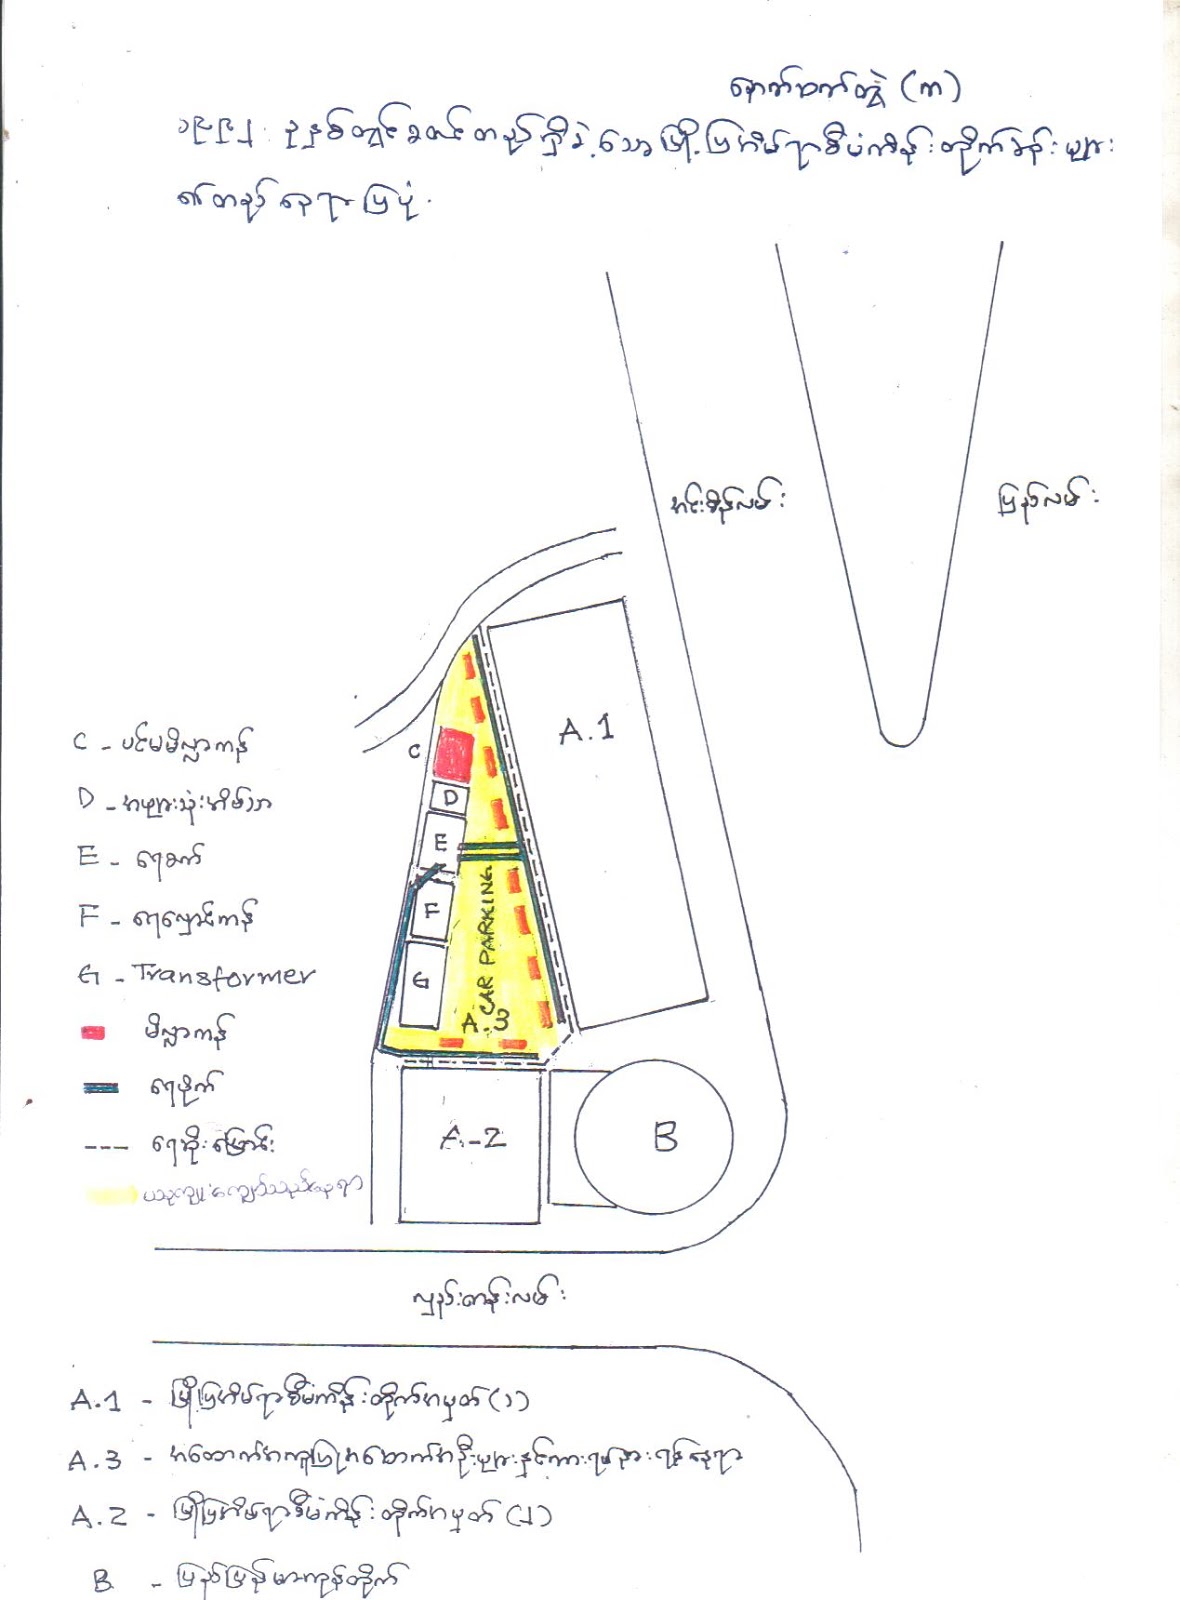 နောက်ဆက်တွဲ (က)
၁၉၉၂ ခုနှစ်တွင်စတင်တည်ရှိခဲ့သောမြို့ပြအိမ်ရာစီမံကိန်းတိုက်ခန်းများ
၏တည်နေရာပြပုံ.
အင်းစိန်လမ်း
ပြည်လမ်း
A.1
C - ပင်မမိလ္လာကန်
C
D - အများသုံးအိမ်သာ
D
E - ရေစက်
E
F - ရေလှောင်ကန်
F
G - Transformer
G
CAR PARKING
A.3
မိလ္လာကန်
ရေပိုက်
ရေဆိုးမြောင်း
ကျူးကျော်သည့်နေရာ
A-2
B
လှည်းတန်းလမ်း
A.1 - မြို့ပြအိမ်ရာစီမံကိန်းတိုက်အမှတ် (၁)
A.3 - အထောက်အကူပြုအဆောက်အဦးများနှင့်ကားရပ်နားရန်နေရာ
A.2 - မြို့ပြအိမ်ရာစီမံကိန်းတိုက်အမှတ် (၂)
B - ပြည်မြန်မာကုန်တိုက်